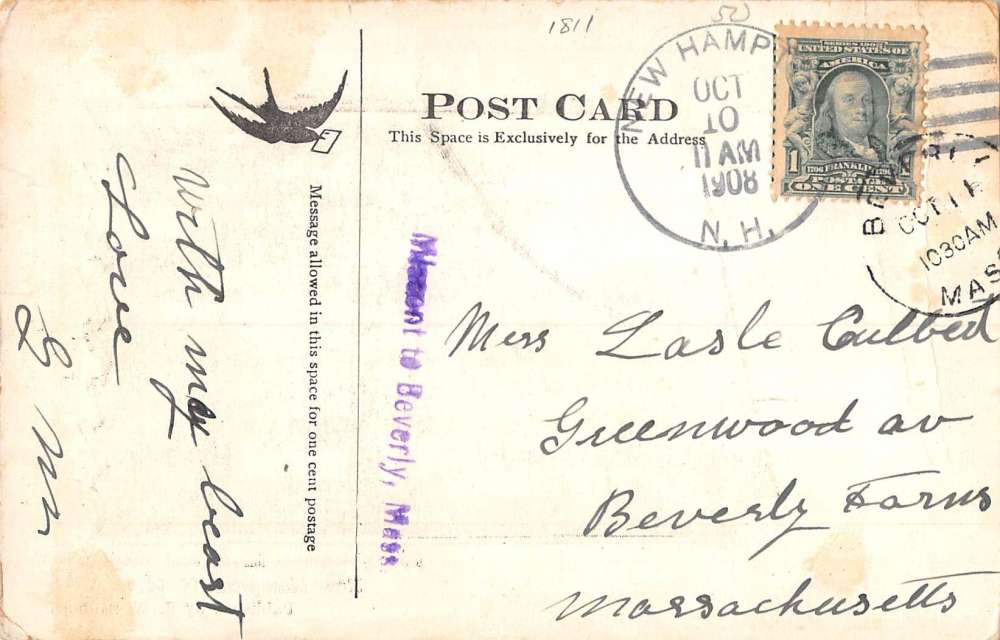 1811
50
POST CARD
This Space is Exclusively for the Address
NEW HAMP
OCT
10
11 AM
1908
N. H.
SERIES 1902
UNITED STATES OF
AMERICA
1706 FRANKLIN 1790
POSTAGE
1 ONE CENT 1
OCT 11
1030 AM
MASS
Message allowed in this space for one cent postage
With my beast
Love
to Beverly, Mass.
Miss Lasle Culbert
Greenwood av
Beverly Farms
Massachusetts